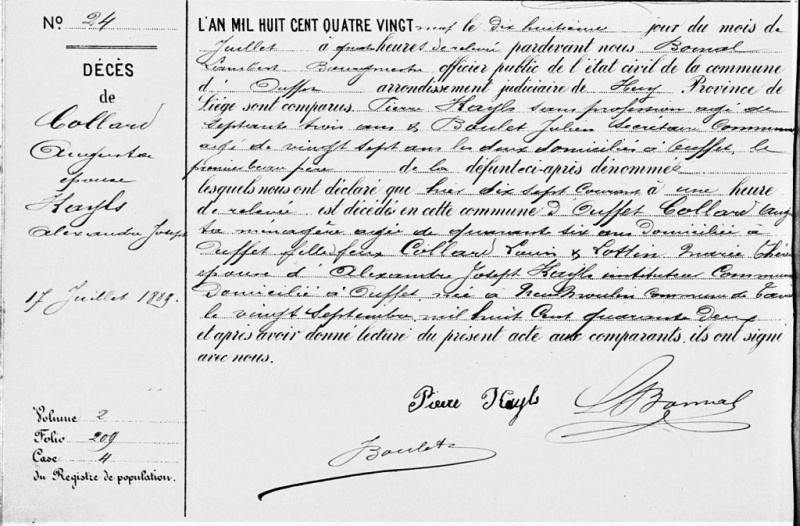 N.° 24
DÉCÈS
de
Collard
Augusta
épouse
Kayls
Alexandre Joseph
17 Juillet 1889.
Volume 2
Folio 209
Case 4
du Registre de population.
L'AN MIL HUIT CENT QUATRE VINGT neuf le dix huitième jour du mois de
Juillet à quatre heures de relevée pardevant nous Bomal
Lambert Bourgmestre officier public de l'état civil de la commune
d Ouffet arrondissement judiciaire de Huy Province de
Liége sont comparus. Pierre Kayls sans profession agé de
septante trois ans & Boulet Julien Secrétaire Commun
agé de vingt sept ans les deux domiciliés à Ouffet, le
premier beau père de la défunt-ci-après dénommé
lesquels nous ont déclaré que hier dix sept Courant à une heure
de relevée est décédés en cette commune d Ouffet Collard Aug
ta ménagère agée de quarante six ans domiciliée à
Ouffet fille de feux Collard Louis & Marie Thér
épouse d'Alexandre Joseph Kayls instituteur Commun
Domiciliée à Ouffet née à Neufmoulin Commune de
le vingt Septembre mil huit Cent quarante deux
et après avoir donné lecture du présent acte aux comparants, ils ont signé
avec nous.
Pierre Kayls
L Bomal
Boulet